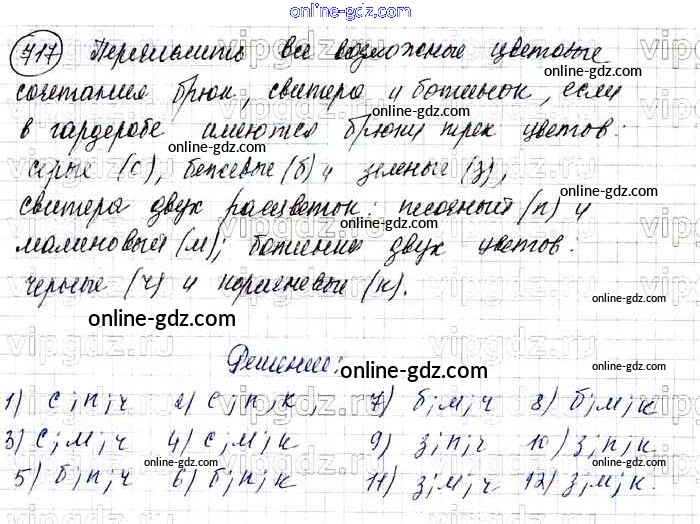 online-gdz.com
717 Перечислить все возможные цветовые
сочетания брюк, свитера и ботинок, если
в гардеробе имеются брюки трех цветов:
серые (с), бежевые (б) и зеленые (з),
свитера двух расцветок: песочный (п) и
малиновый (м); ботинки двух цветов:
черные (ч) и коричневые (к).
Решение:
1) с; п; ч 2) с; п; к 7) б; м; ч 8) б; м; к
3) с; м; ч 4) с; м; к 9) з; п; ч 10) з; п; к
5) б; п; ч 6) б; п; к 11) з; м; ч 12) з; м; к.
online-gdz.com
vipgdz.ru